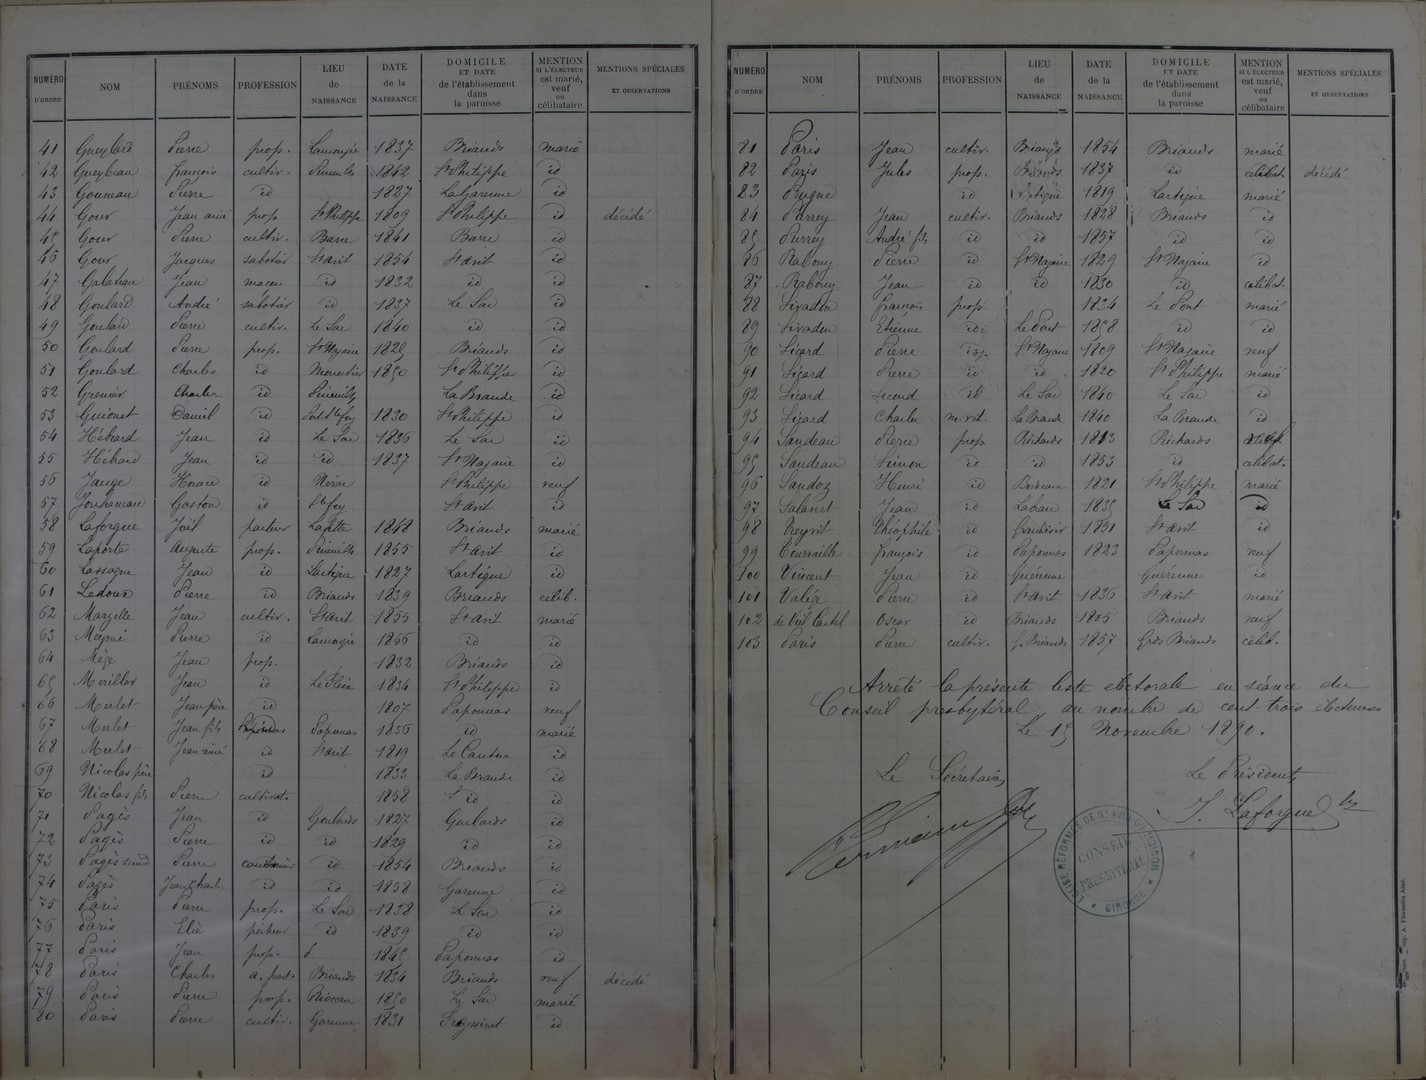 NUMÉRO D'ORDRE NOM PRÉNOMS PROFESSION LIEU de NAISSANCE DATE de la NAISSANCE DOMICILE ET DATE de l'établissement dans la paroisse MENTION SI L'ÉLECTEUR est marié, veuf ou célibataire MENTIONS SPÉCIALES ET OBSERVATIONS
41 Pierre prop. 1837 Briands marié
42 Gueyleau François cultiv. 1842 St Philippe id
43 Gouneau Pierre id 1827 La Garenne id
44 Gour Jean ainé prop St Philippe 1809 St Philippe id décédé
45 Gour Pierre cultiv. Barre 1841 Barre id
46 Gour Jacques sabotier St Avit 1854 St Avit id
47 Jean maçon id 1832 id id
48 Goulard André sabotier id 1837 Le Sar id
49 Goulard Pierre cultiv. Le Sar 1840 id id
50 Goulard Pierre prop. St Nazaire Briands id
51 Goulard Charles id 1850 St Philippe id
52 Grenier Charles id La Braude id
53 Guionet Daniel id 1830 St Philippe id
54 Hébrard Jean id Le Sar 1836 Le Sar id
55 Hébrard Jean id id 1837 St Nazaire id
56 Jauge Horace id St Philippe veuf
57 Gaston id Ste Foy St Avit id
58 Laforgue Joël pasteur Lafitte Briands marié
59 Laporte Auguste prop. 1855 St Avit id
60 Lassagne Jean id Lartigue 1827 Lartigue id
61 Ledoux Pierre id Briands 1839 Briands célib.
62 Marzelle Jean cultiv. St Avit 1855 St Avit marié
63 Pierre id Lamonzie id id
64 Mège Jean prop. 1832 Briands id
65 Merilles Jean id 1834 St Philippe id
66 Merlet Jean père 1807 Paponnas veuf
67 Merlet Jean fils Paponnas 1836 id marié
68 Merlet Jean ainé id St Avit 1819 id
69 Nicolas père id 1833 La Braude id
70 Nicolas fils Pierre cultivat. 1858 id id
71 Pagès Jean id Goulards 1827 Goulards id
72 Pagès Pierre id id 1829 id id
73 Pagès Pierre id 1854 Briands id
74 Pagès id id 1858 Garenne id
75 Paris Pierre prop. Le Sar 1838 Le Sar id
76 Paris Elie pêcheur id 1839 id id
77 Paris Jean prop. 1845 Paponnas id
78 Paris Charles Briands 1834 Briands veuf décédé
79 Paris Pierre prop. 1850 Le Sar marié
80 Paris Pierre cultiv. Garenne 1831 id
NUMÉRO D'ORDRE NOM PRÉNOMS PROFESSION LIEU de NAISSANCE DATE de la NAISSANCE DOMICILE ET DATE de l'établissement dans la paroisse MENTION SI L'ÉLECTEUR est marié, veuf ou célibataire MENTIONS SPÉCIALES ET OBSERVATIONS
81 Paris Jean cultiv. Briands 1854 Briands marié
82 Paris Jules prop. Briands 1837 id célibat. décédé
83 id Lartigue 1819 Lartigue marié
84 Perrey Jean cultiv. Briands 1828 Briands id
85 Perrey André fils id id 1857 id id
86 Rabouy Pierre id St Nazaire 1829 St Nazaire id
87 Rabouy Jean id id 1830 id célibat.
88 Sivadon François prop. 1834 Le Pont marié
89 Sivadon Etienne id Le Pont id id
90 Sicard Pierre id St Nazaire 1809 St Nazaire veuf
91 Sicard Pierre id id 1820 St Philippe marié
92 Sicard Second id Le Sar 1840 Le Sar id
93 Sicard Charles La Braude 1840 La Braude id
94 Sandeau Pierre prop Richards Richards
95 Sandeau Simon id id 1853 id célibat.
96 Sandoz Henri id Bordeaux 1821 St Philippe marié
97 Jean id Le Sar id
98 Neyrit Théophile id St Avit id
99 Tourraille François id Paponnas 1823 Paponnas veuf
100 Vincent Jean id Guérenne Guérenne id
101 Pierre id St Avit 1836 St Avit marié
102 de Viel Castel Oscar id Briands 1805 Briands veuf
103 Paris Pierre cultiv. G. Briands 1857 Gds Briands célib.
Arrêté la présente liste électorale en séance du
Conseil presbytéral au nombre de cent trois électeurs
Le 15 Novembre 1890.
Le Secrétaire, Le Président,
J. Laforgue
EGLISE RÉFORMÉE DE ST AVIT-DU-MOIRON
CONSEIL PRESBYTÉRAL
GIRONDE